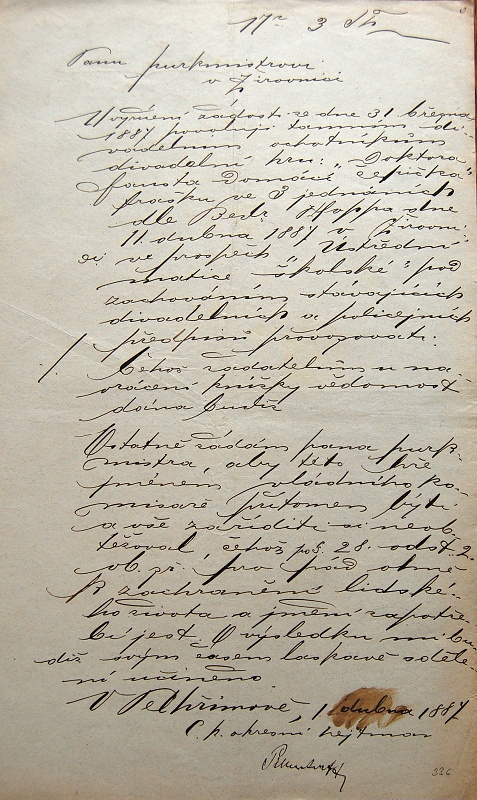 17 3
Panu purkmistrovi
v Žirovnici
žádost ze dne 31 března
1887 povoluji tamním di-
vadelním ochotníkům
divadelní hru: „Doktora
Fausta domácí čepička"
frašku ve 3 jednáních
dle Bedř. Hoppa dne
11. dubna 1887 v Žirovni-
ci ve prospěch „Ústřední
matice školské" pod
zachováním stávajících
divadelních a policejních
předpisů provozovati.
Čehož žadatelům u na-
vrácení knížky vědomost
dána budiž
Ostatně žádám pana purk-
mistra, aby této hře
jménem vládního ko-
misaře přítomen býti
a vše zaříditi si neob-
těžoval, čehož 28. odst. 2.
ob. zř. pro
k zachránění lidské-
ho života a jmění zapotře-
bí jest. O výsledku mi bu-
diž svým časem laskavě sděle-
ní učiněno
V Pelhřimově, 1 dubna 1887
C. k. okresní hejtman
326